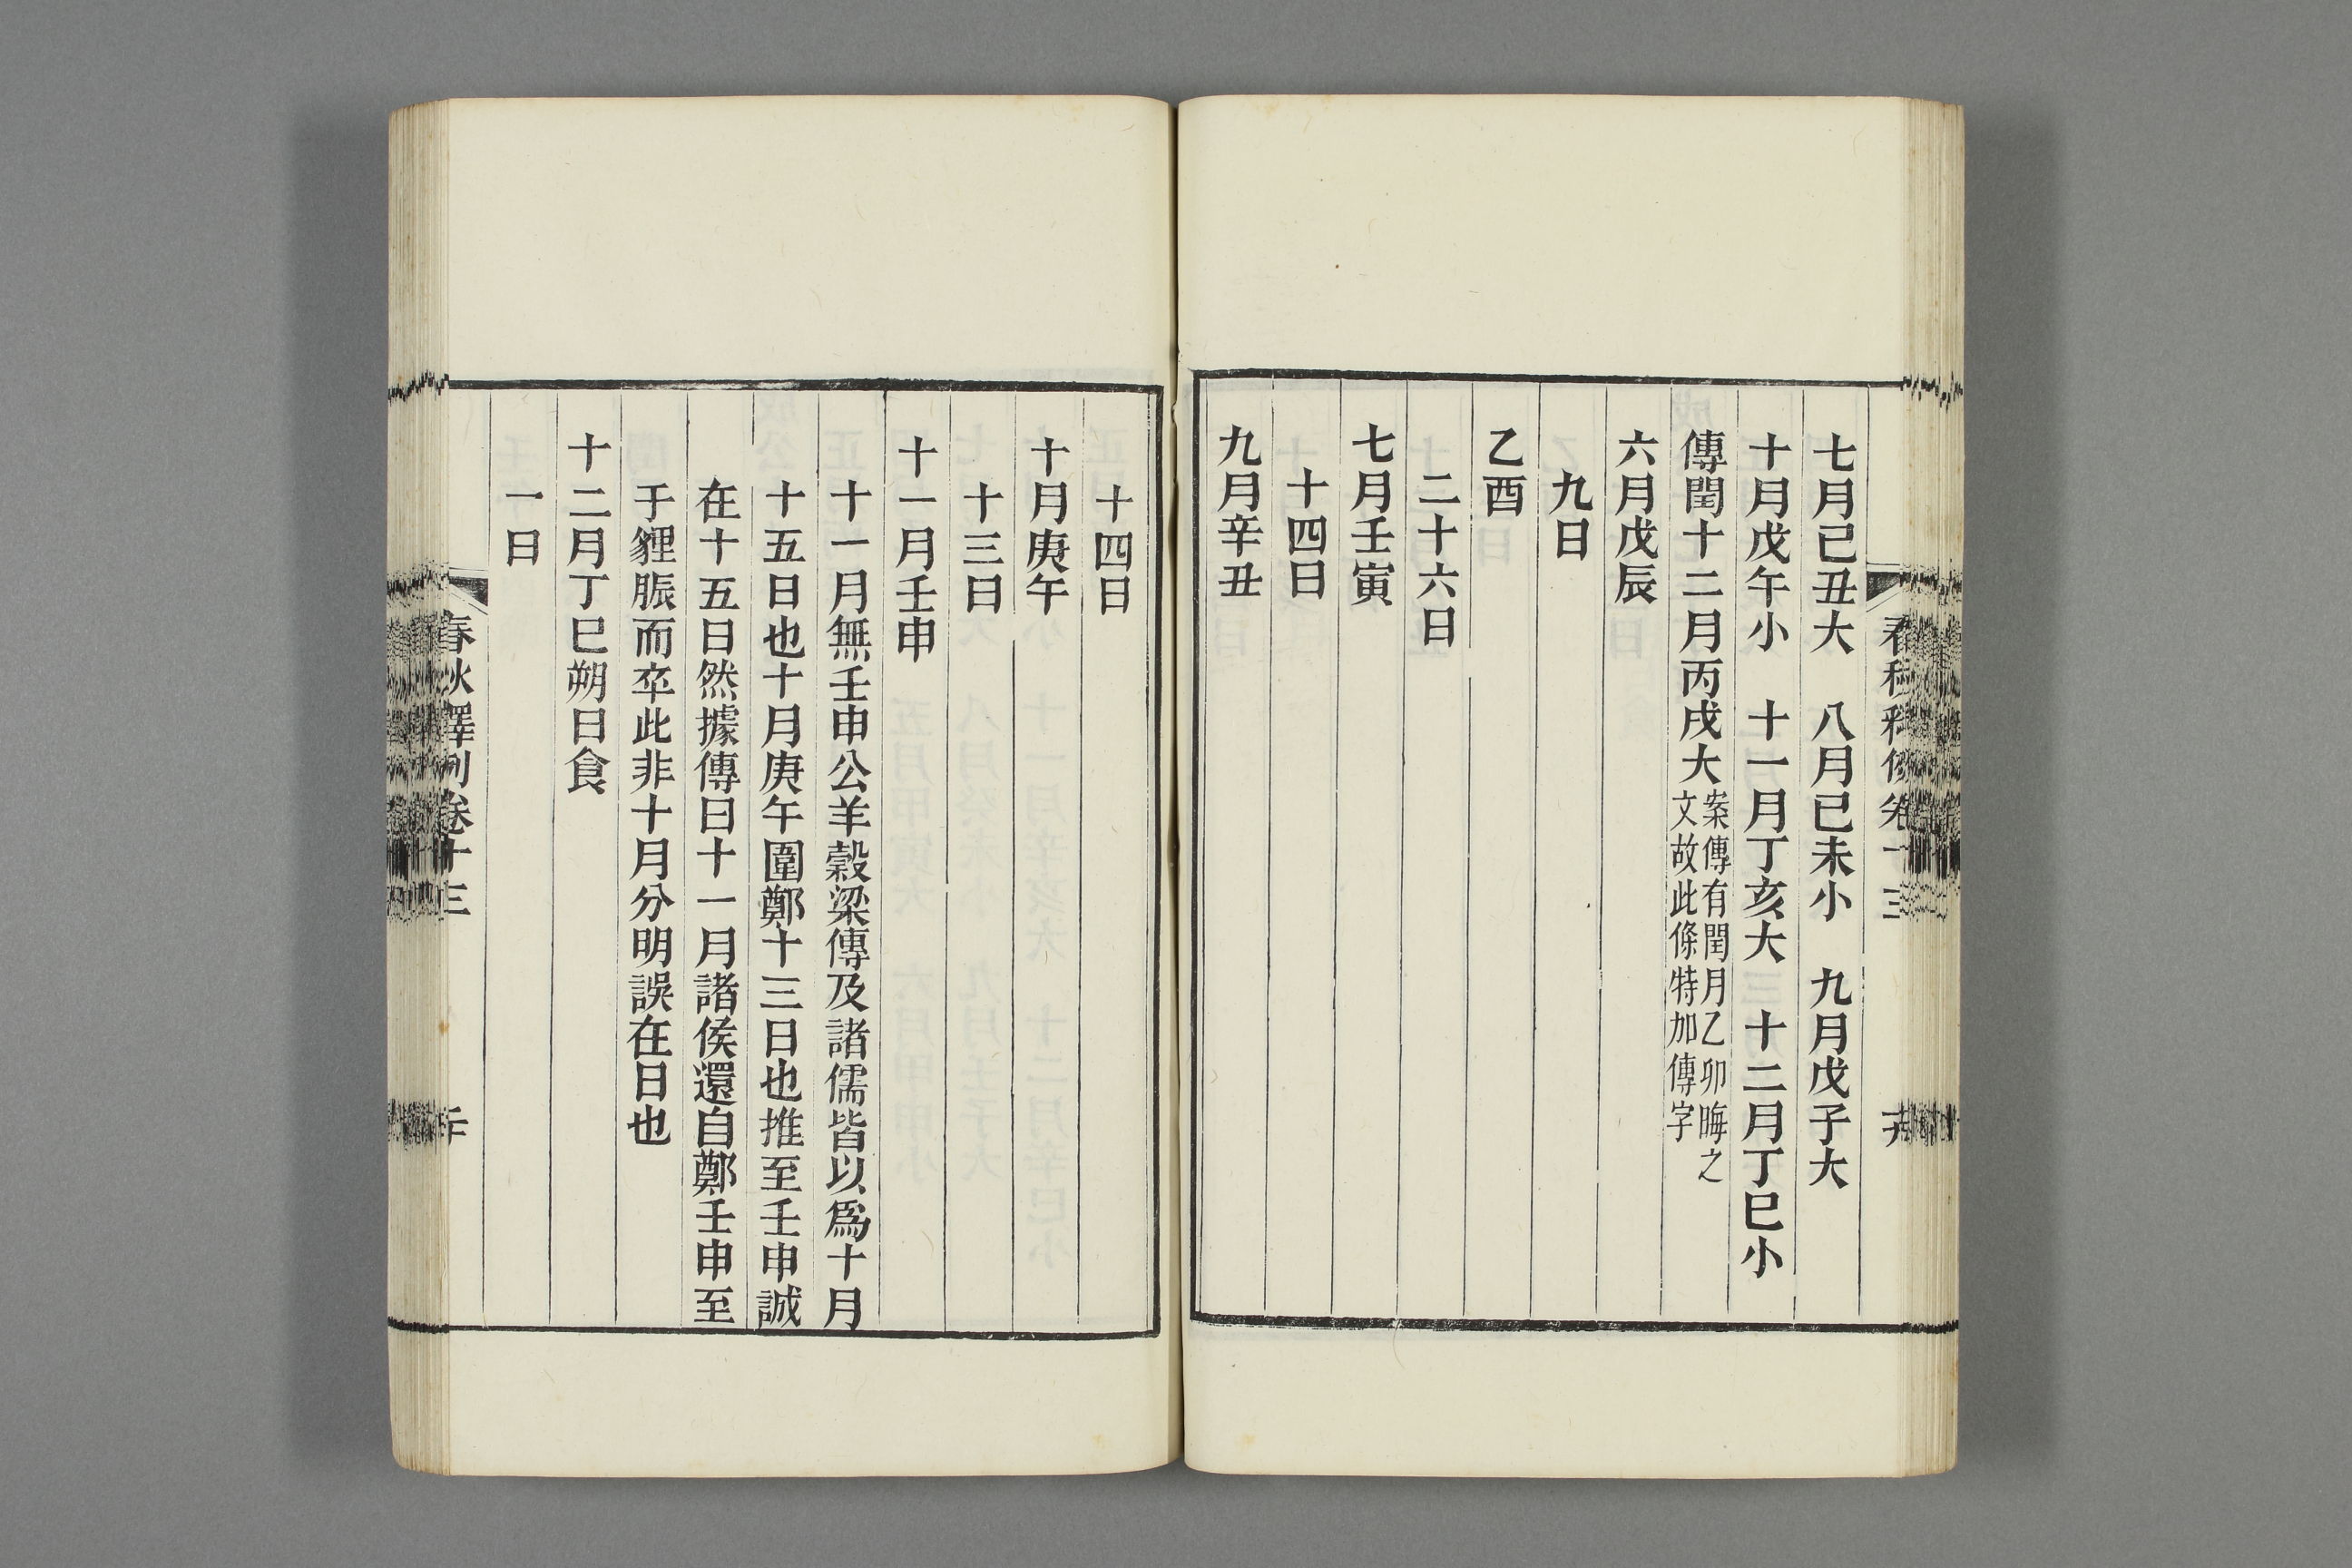 七月己丑大　八月己未小　九月戊子大
十月戊午小　十一月丁亥大　十二月丁巳小
傳閏十二月丙戌大
案傳有閏月乙卯晦之
文故此條特加傳字
六月戊辰
九日
乙酉
二十六日
七月壬寅
十四日
九月辛丑
十四日
十月庚午
十三日
十一月壬申
十一月無壬申公羊穀梁傳及諸儒皆以爲十月
十五日也十月庚午圍鄭十三日也推至壬申誠
在十五日然據傳曰十一月諸侯還自鄭壬申至
于貍脤而卒此非十月分明誤在日也
十二月丁巳朔日食
一日
春秋釋例卷十三